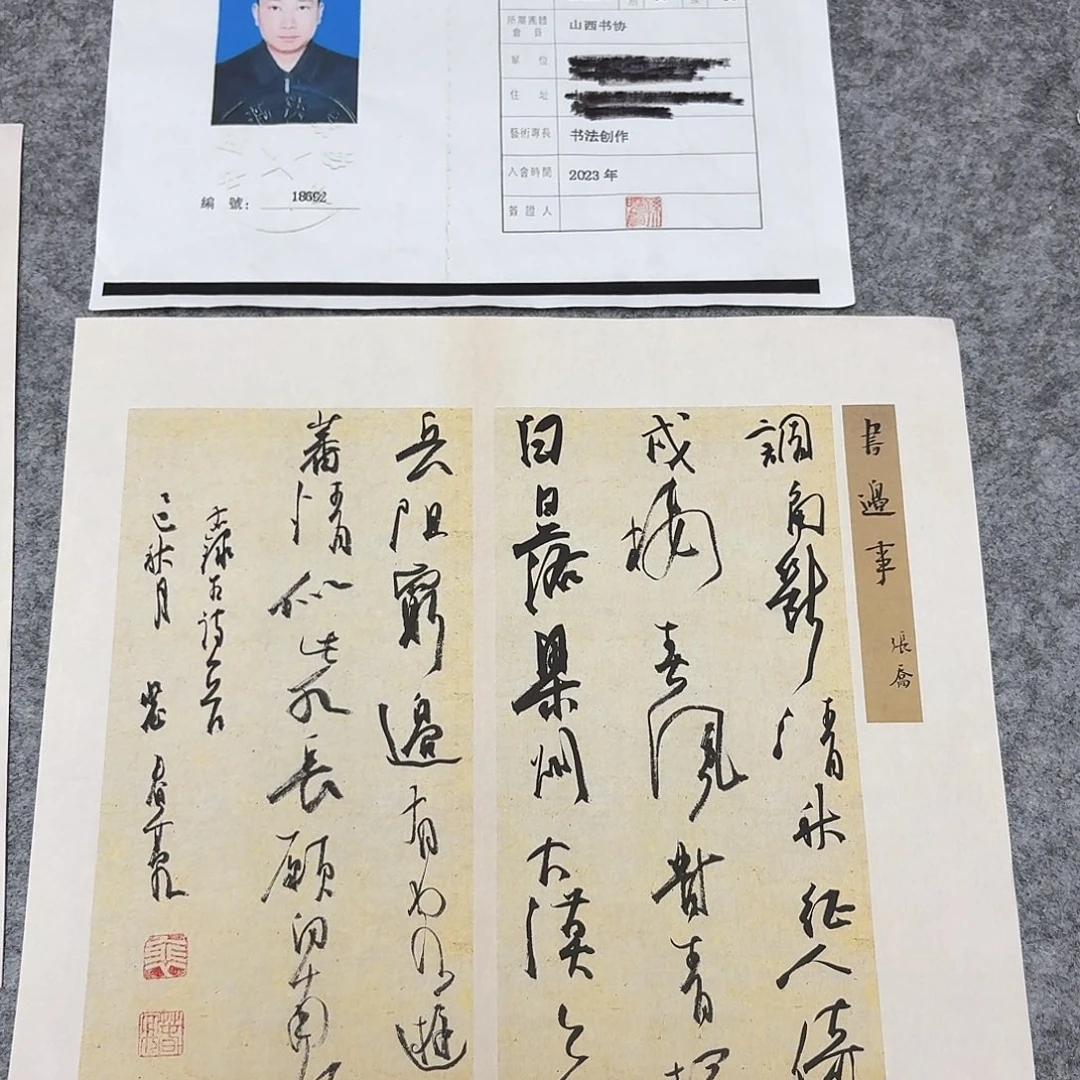 所屬團體
會員 山西书协
單位
住址
藝術專長 书法创作
入會時間 2023 年
簽證人
編號: 18692
書邊事
張喬
調角斷清秋征人倚
戍樓春風對青
白日落梁州大漠
兵阻窮邊有遊
蕃情似此水長願向南
錄古詩一首
乙巳秋月